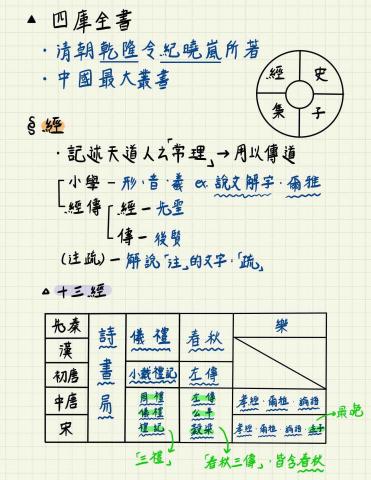 ▲ 四庫全書
・清朝乾隆令紀曉嵐所著
・中國最大叢書
經 史
集 子
§ 經
・記述天道人之「常理」→用以傳道
小學 — 形、音、義 ex. 說文解字、爾雅
經傳 經 — 先聖
傳 — 後賢
(注疏) — 解說「注」的文字:「疏」
△ 十三經
先秦 詩 書 易 儀禮 春秋 樂
漢
初唐 小戴禮記 左傳
中唐 周禮 儀禮 禮記 左傳 公羊 穀梁 孝經、爾雅、論語
宋 孝經、爾雅、論語、孟子 →最晚
「三禮」 「春秋三傳」,皆含春秋